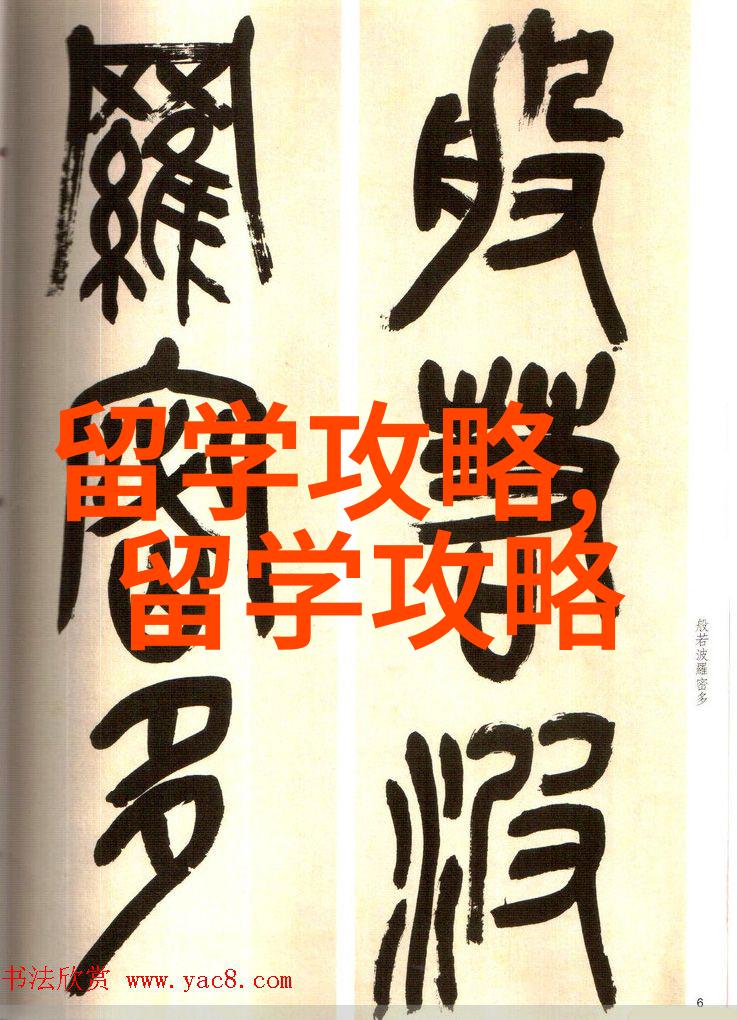 般若波
羅密多
留学攻略,
留学攻略
般若波羅密多
书法欣赏 www.yac8.com
6